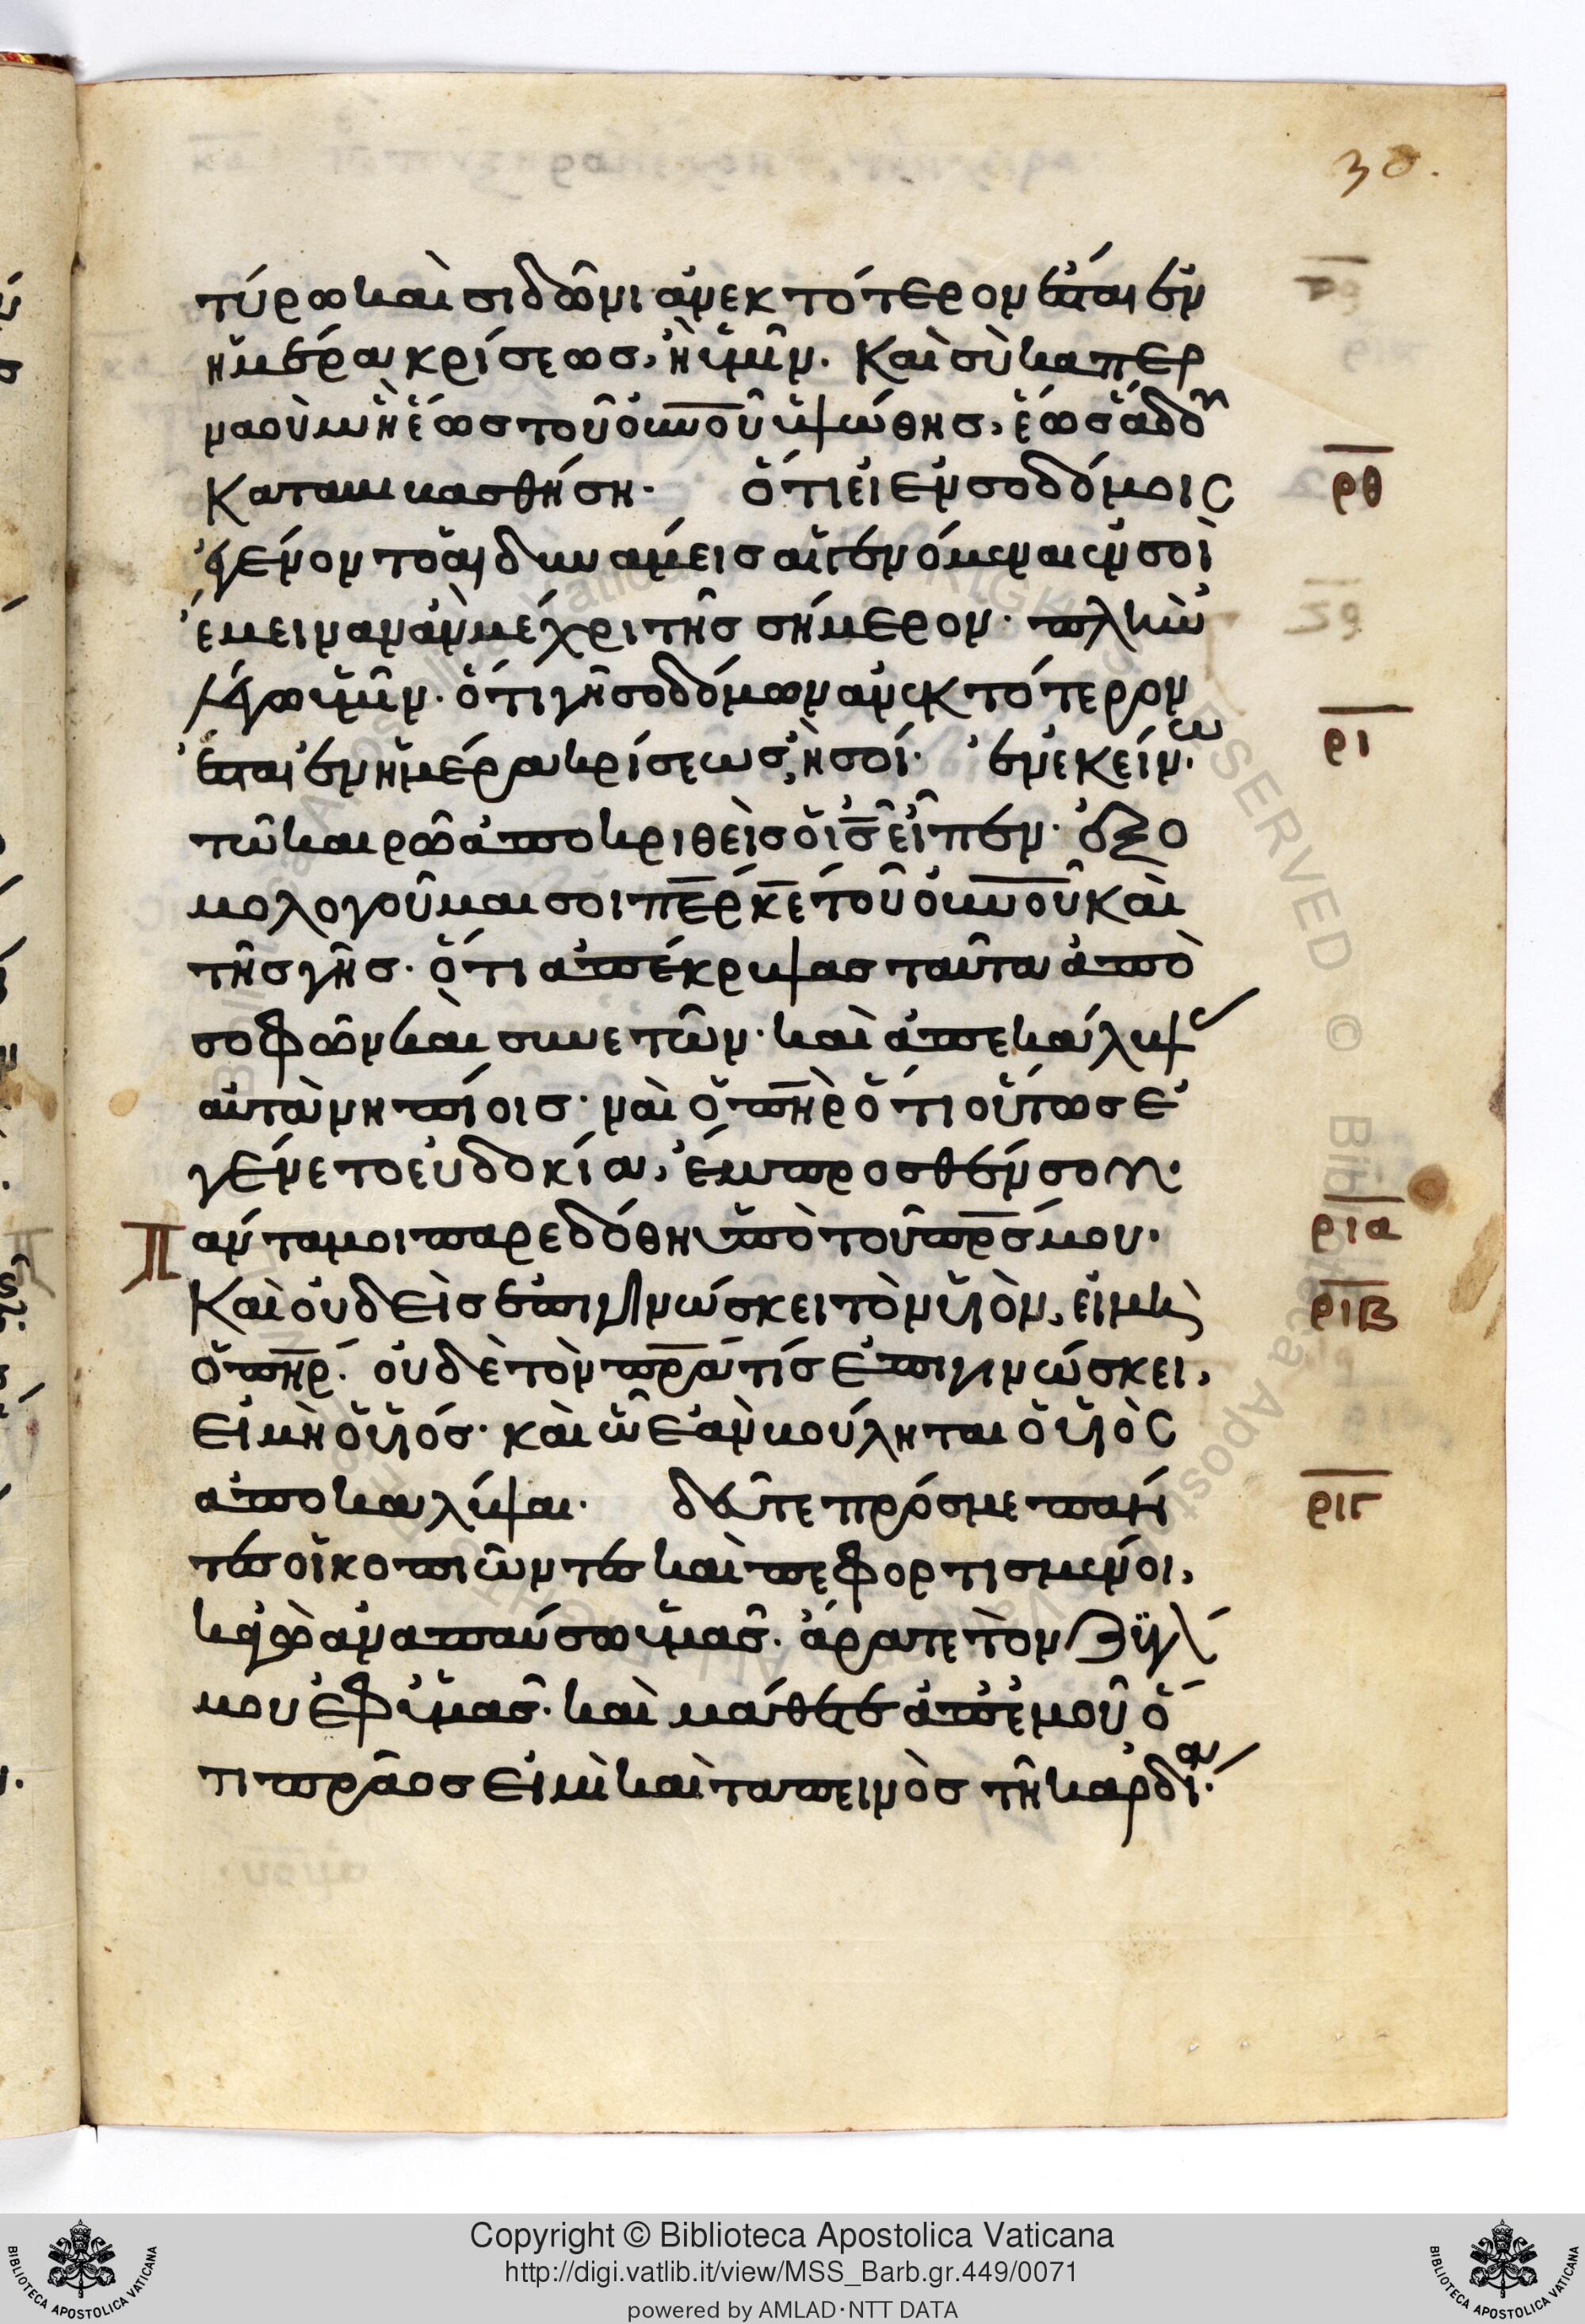 30.
τύρω καὶ σιδῶνι ἀνεκτότερον ἔσται ἐν
ἡμέρα κρίσεως, ἢ ὑμῖν. Καὶ σὺ καπερ
ναοὺμ ἡ ἕως τοῦ οὐνοῦ ὑψώθης, ἕως ἅδου
Καταβιβασθήση. ὅτι εἰ ἐν σοδόμοις
ρθ
ἐγένοντο αἱ δυνάμεις αἱ γενόμεναι ἐν σοὶ
ἔμειναν ἂν μέχρι τῆς σήμερον. πλὴν
λέγω ὑμῖν. ὅτι γῆ σοδόμων ἀνεκτότερον
ἔσται ἐν ἡμέρα κρίσεως, ἢ σοί. ἐν ἐκείνω
ρι
τῶ καιρῶ ἀποκριθεὶς ὁ ις εἶπεν. ἐξο
μολογοῦμαι σοι περ κε τοῦ οὐνοῦ καὶ
τῆς γῆς. ὅτι ἀπέκρυψας ταῦτα ἀπὸ
σοφῶν καὶ συνετῶν. καὶ ἀπεκάλυψ
αὐτὰ νηπίοις. ναὶ ὁ πηρ ὅτι οὕτως ἐ
γένετο εὐδοκία, ἔμπροσθέν σου.
Π αντα μοι παρεδόθη ὑπὸ τοῦ πρς μου.
ρια
Καὶ οὐδεὶς ἐπιγινώσκει τὸν υἱὸν, εἰ μὴ
ριβ
ὁ πηρ. οὐδὲ τὸν πρα τίς ἐπιγινώσκει,
εἰ μὴ ὁ υἱός. καὶ ὧ ἐὰν βούληται ὁ υἱὸς
ἀποκαλύψαι. δεῦτε πρός με πάν
ριγ
τες οἱ κοπιῶντες καὶ πεφορτισμένοι,
κἀγὼ ἀναπαύσω ὑμᾶς. ἄρατε τὸν ζυγ
μου ἐφ ὑμᾶς. καὶ μάθετε ἀπ ἐμοῦ ὅ
τι πρᾶος εἰμὶ καὶ ταπεινὸς τῆ καρδία.
Copyright © Biblioteca Apostolica Vaticana
http://digi.vatlib.it/view/MSS_Barb.gr.449/0071
powered by AMLAD·NTT DATA
BIBLIOTECA APOSTOLICA VATICANA
BIBLIOTECA APOSTOLICA VATICANA